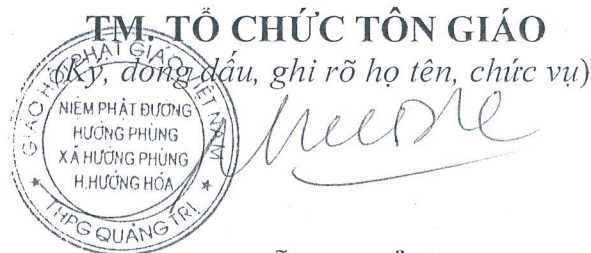 TM. TỔ CHỨC TÔN GIÁO
(Ký, đóng dấu, ghi rõ họ tên, chức vụ)
GIÁO HỘI PHẬT GIÁO VIỆT NAM
NIỆM PHẬT ĐƯỜNG
HƯỚNG PHÙNG
XÃ HƯỚNG PHÙNG
H.HƯỚNG HÓA
THPG QUẢNG TRỊ